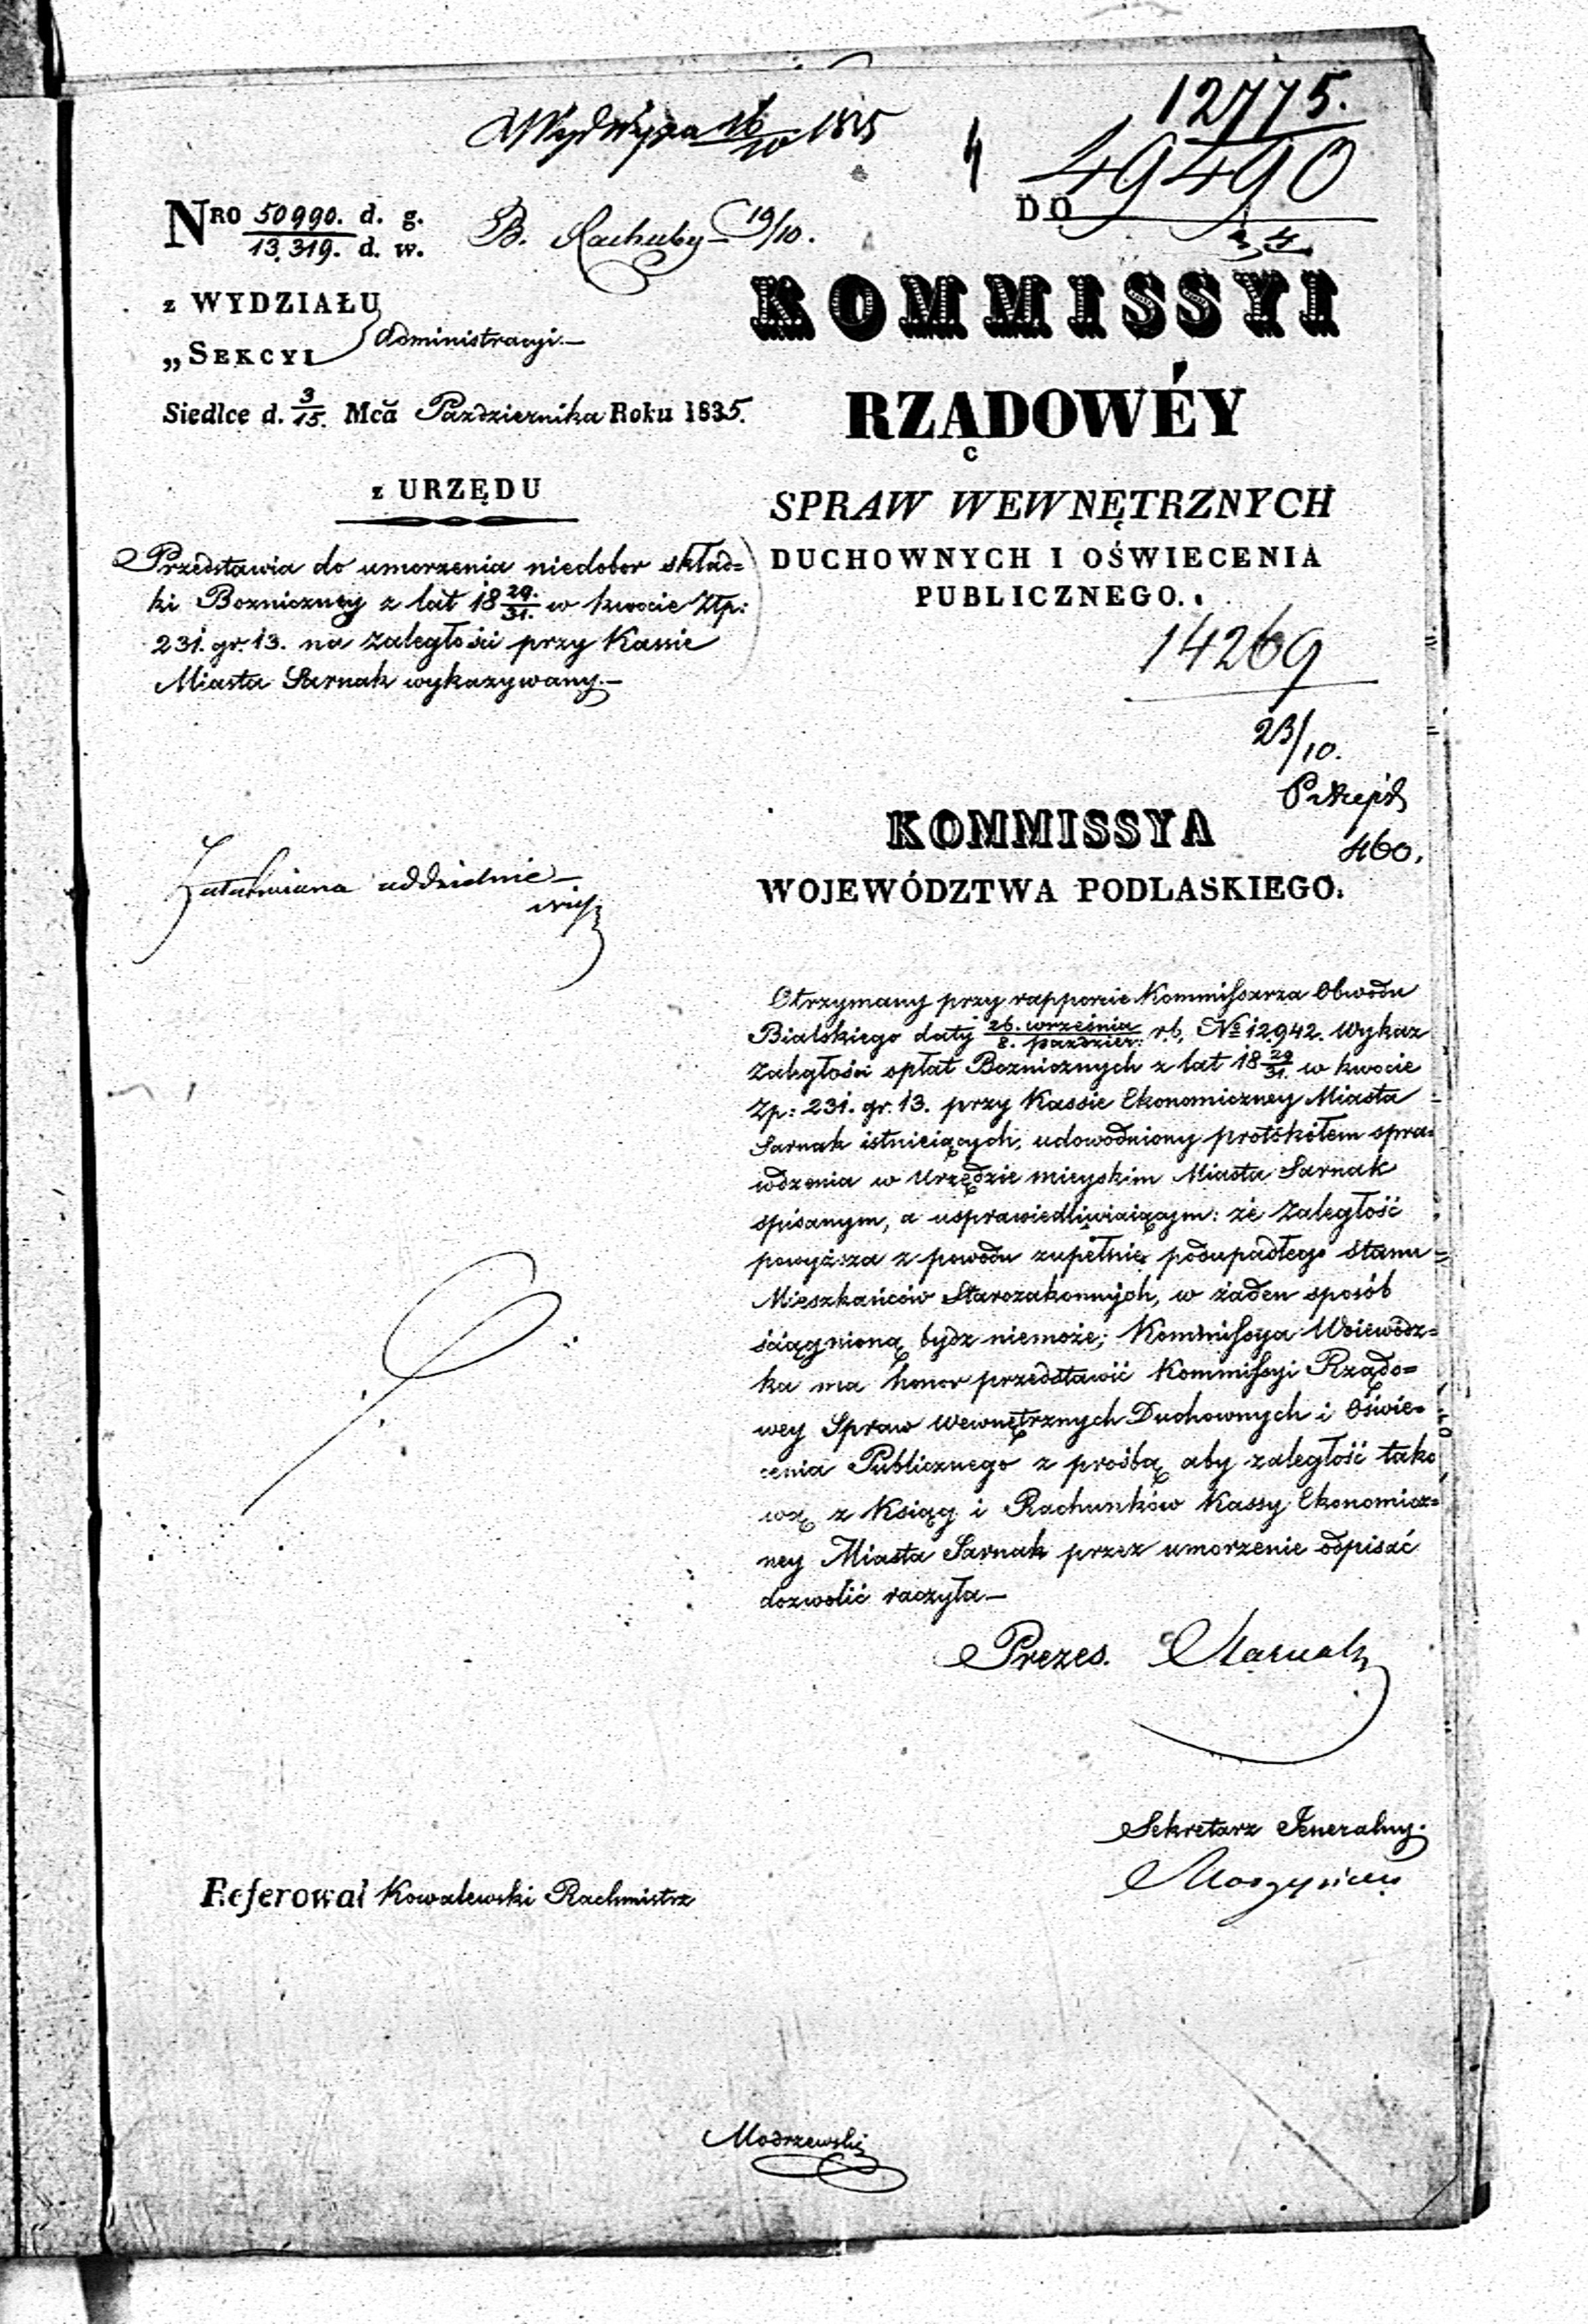 12775.
49490
Nro 50990. d. g.
13,319. d. w.
B. Rachuby 19/10.
DO
z WYDZIAŁU
„SEKCYI Administracyi.—
Siedlce d. 3/15. Mcă Października Roku 1835.
z URZĘDU
Przedstawia do umorzenia niedobor skład=
ki Bozniczney z lat 18 29./31. w kwocie Złp:
231. gr. 13. na zaległości przy Kassie
Miasta Sarnak wykazywany.—
KOMMISSYI
RZĄDOWÉY
SPRAW WEWNĘTRZNYCH
DUCHOWNYCH I OŚWIECENIA
PUBLICZNEGO.
14269
23/10.
460.
KOMMISSYA
WOJEWÓDZTWA PODLASKIEGO.
Załatwiona oddzielnie—
Otrzymany przy rapporcie Kommissarza Obwodu
Bialskiego daty 26. września/8. paździer: r.b. No 12942. Wykaz
Zaległości opłat Bozniczných z lat 18 29/31. w kwocie
Zp: 231. gr. 13. przy Kassie Ekonomiczney Miasta
Sarnak istnieiących, udowodniony protokółem spra=
wdzenia w Urzędzie mieyskim Miasta Sarnak
spisanym, a usprawiedliwiaiącym: że Zaległość
powyższa z powodu zupełnie podupadłego stanu
Mieszkańców Starozakonnych, w żaden sposób
ściągnioną bydz niemoże; Kommissya Woiewódz=
ka ma honor przedstawić Kommissyi Rządo=
wey Spraw Wewnętrznych Duchownych i Oświe=
cenia Publicznego z prośbą aby zaległość tako
wą z Ksiąg i Rachunków Kassy Ekonomicz=
ney Miasta Sarnak przez umorzenie odpisać
dozwolić raczyła—
Prezes.
Sekretarz Jeneralny.
Referował Kowalewski Rachmistrz
Modrzewski